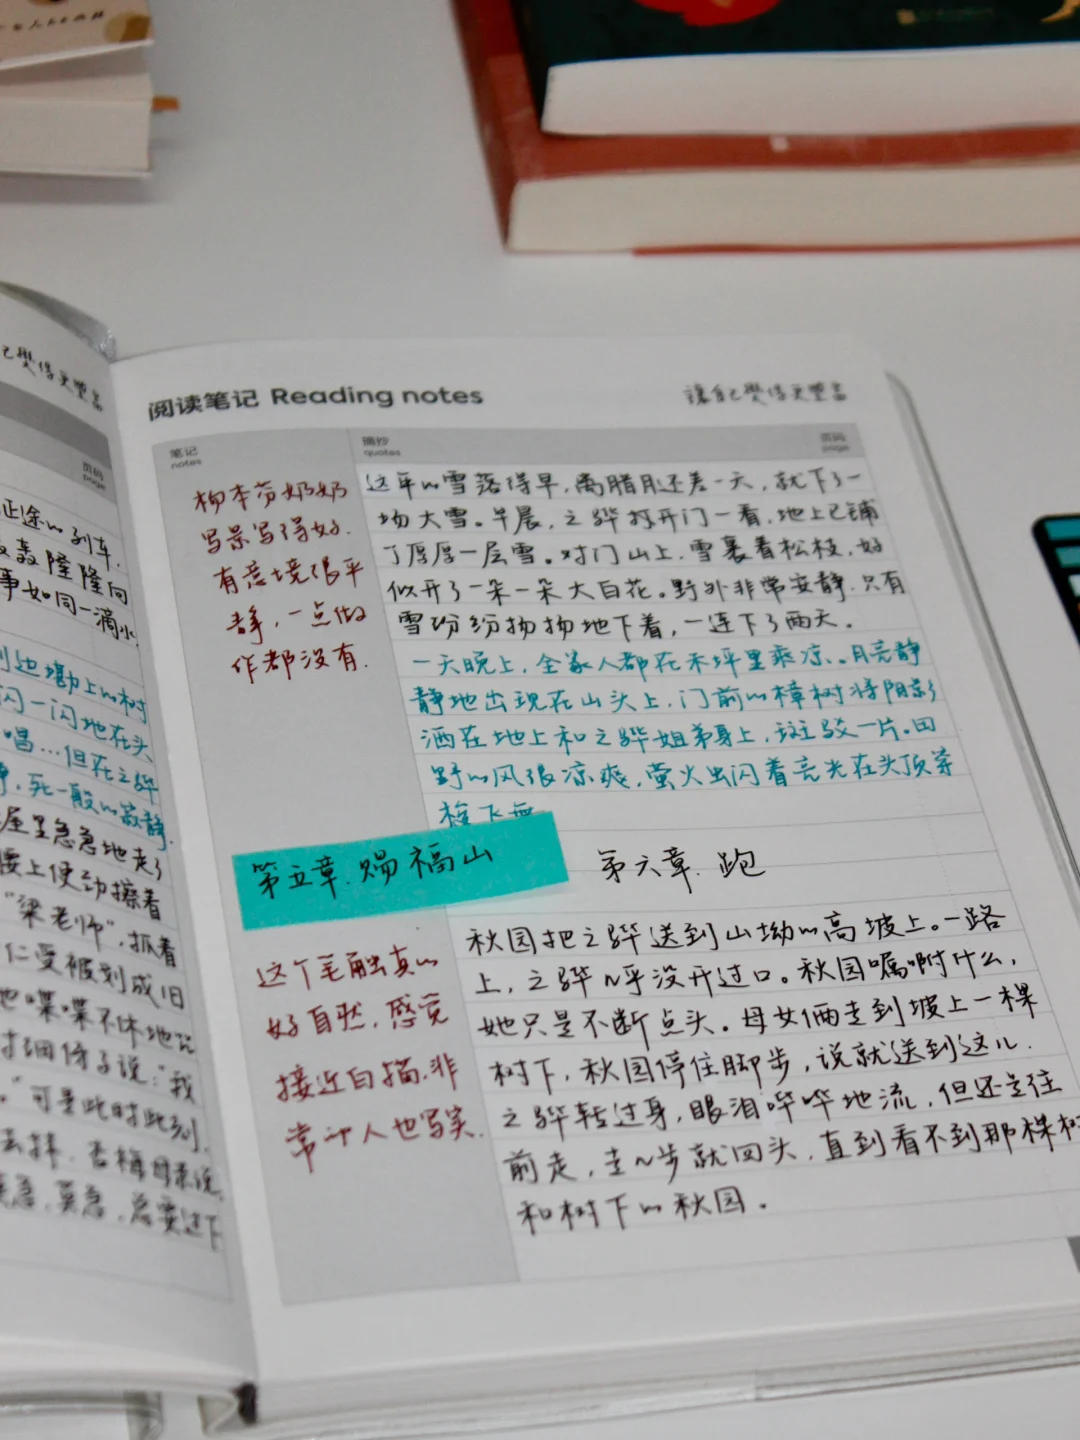 阅读笔记 Reading notes
讓自己變得更豐富
笔记
notes
摘抄
quotes
页码
page
杨本芬奶奶
写景写得好.
有意境很平
静，一点做
作都没有.
这年的雪落得早，离腊月还差一天，就下了一
场大雪。早晨，之骅打开门一看，地上已铺
了厚厚一层雪。对门山上，雪裹着松枝，好
似开了一朵一朵大白花。野外非常安静，只有
雪纷纷扬扬地下着，一连下了两天。
一天晚上，全家人都在禾坪里乘凉。月亮静
静地出现在山头上，门前的樟树将阴影
洒在地上和之骅姐弟身上，斑驳一片。田
野的风很凉爽，萤火虫闪着亮光在头顶
飞舞
第五章.赐福山
第六章.跑
这个笔触真的
好自然，感觉
接近白描.非
常
人也写哭.
秋园把之骅送到山坳的高坡上。一路
上，之骅几乎没开过口。秋园嘱咐什么，
她只是不断点头。母女俩走到坡上一棵
树下，秋园停住脚步，说就送到这儿.
之骅转过身，眼泪哗哗地流，但还是往
前走，走几步就回头，直到看不到那棵树
和树下的秋园。
页码
page
征途的列车
轰隆隆向
事如同一滴水
边墈上的树
闪一闪地在头
唱…但在之骅
静，死一般的寂静.
屋里急急地走了
腰上使劲擦着
“梁老师”，抓着
仁受被划成旧
地喋喋不休地
说：“我
”可是此时此刻